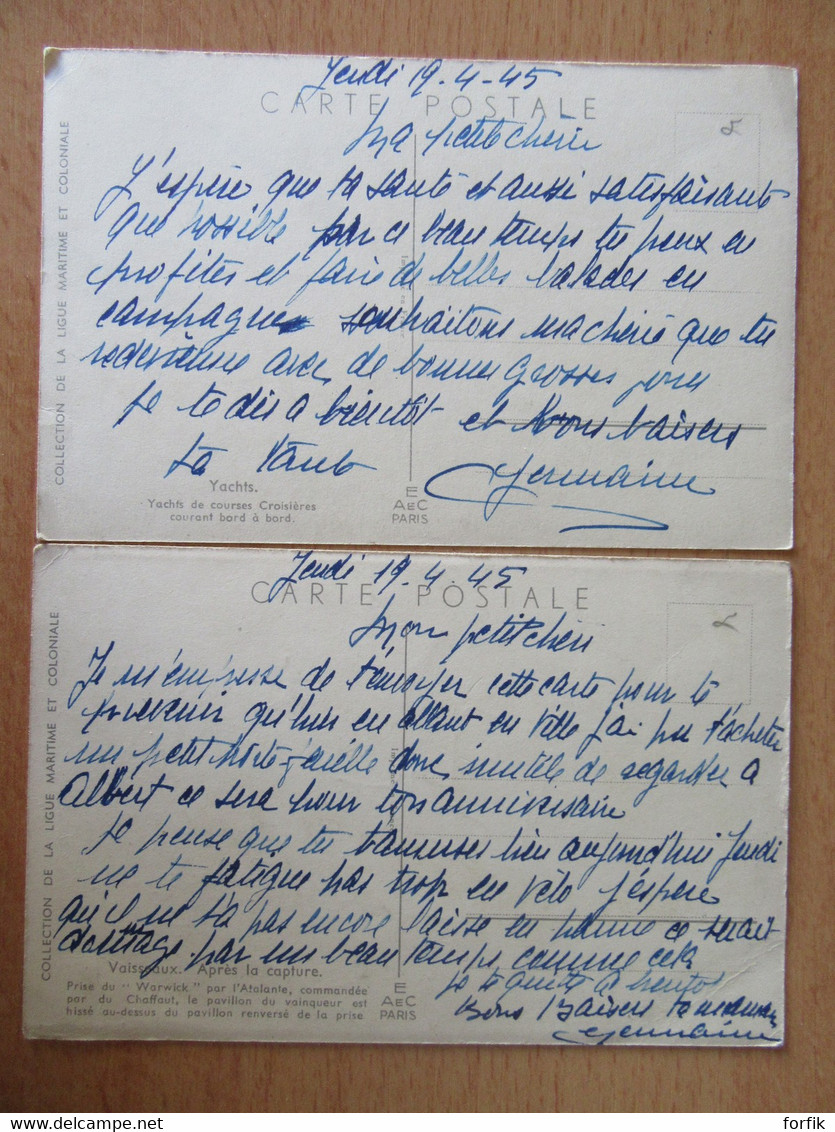 Jeudi 19.4-45
CARTE POSTALE
Ma petite chérie
J'espère que ta santé et aussi satisfaisante
que possible par ce beau temps tu peux en
profiter et faire de belles balades en
campagne souhaitons ma chérie que tu
avec de bonnes grosses joues
Je te dis a bientôt et bons baisers
ta Germaine
Yachts.
Yachts de courses Croisières
courant bord à bord.
E
AEC
PARIS
COLLECTION DE LA LIGUE MARITIME ET COLONIALE
Jeudi 19.4.45
CARTE POSTALE
Mon petit chéri
Je m'empresse de t'envoyer cette carte pour te
prevenir qu'hier en allant en ville j'ai pu t'acheter
un petit donc inutile de regarder a
Albert ce sera pour ton anniversaire
Je pense que tu t'amuses bien aujourd'hui Jeudi
ne te fatigue pas trop en vélo j'espère
qu'il ne t'a pas encore laissé en panne ce serait
dommage par un beau temps comme cela
Je te quitte a bientot
Bons Baisers ta maman
Germaine
Vaisseaux. Après la capture.
Prise du "Warwick" par l'Atalante, commandée
par du Chaffaut, le pavillon du vainqueur est
hissé au-dessus du pavillon renversé de la prise
E
AEC
PARIS
COLLECTION DE LA LIGUE MARITIME ET COLONIALE
forfik